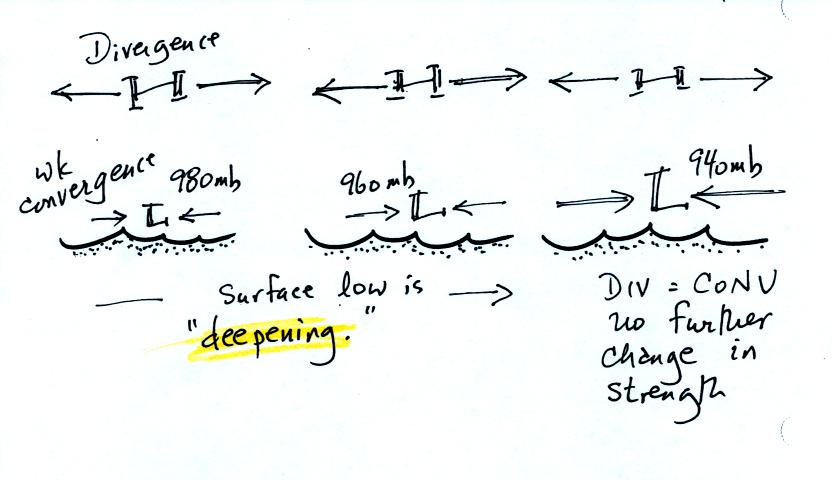 Divergence
H H H
wk
convergence
980mb 960mb 940mb
L L L
Surface low is
"deepening."
DIV = CONV
no further
change in
strength